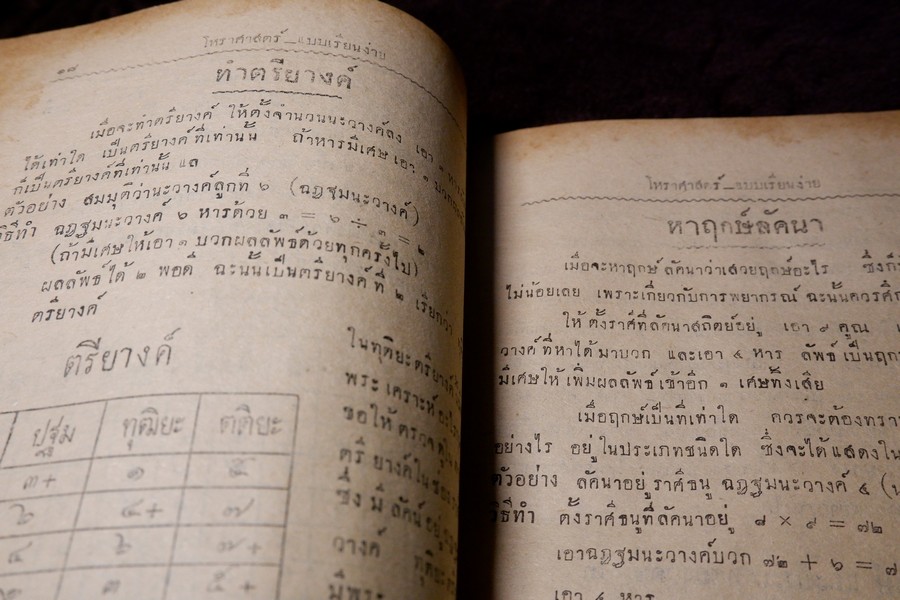 ๑๗
โหราศาสตร์_แบบเรียนง่าย
ทำตรียางค์
เมื่อจะทำตรียางค์ ให้ตั้งจำนวนนะวางค์ลง เอา ๓
ได้เท่าใด เป็นตรียางค์ที่เท่านั้น ถ้าหารมีเศษ เอา ๑ บวก
ก็เป็นตรียางค์ที่เท่านั้น แล
ตัวอย่าง สมมุติว่านะวางค์ลูกที่ ๖ (ฉฏฐมนะวางค์)
วิธีทำ ฉฏฐมนะวางค์ ๖ หารด้วย ๓ = ๖ ÷ ๓ = ๒
(ถ้ามีเศษให้เอา ๑ บวกผลลัพธ์ด้วยทุกครั้งไป)
ผลลัพธ์ได้ ๒ พอดี ฉะนั้นเป็นตรียางค์ ที่ ๒ เรียกว่า
ตรียางค์
ตรียางค์
ปฐม ทุติยะ ตติยะ
๓+ ๑ ๕
๖ ๔+ ๗
๔ ๖ ๗+
๓ ๕+
ในทุติยะตรียางค์
พระเคราะห์องใด
ขอให้ ตรวจดู
ตรี ยางค์ใน
ซึ่ง มี ลัคน์ อยู่
วางค์ ทุติยะ
มีพระ
โหราศาสตร์_แบบเรียนง่าย
หาฤกษ์ลัคนา
เมื่อจะหาฤกษ์ ลัคนาว่าเสวยฤกษ์อะไร ซึ่งก็
ไม่น้อยเลย เพราะเกี่ยวกับการพยากรณ์ ฉะนั้นควรศึก
ให้ ตั้งราศีที่ลัคนาสถิตย์อยู่ เอา ๙ คูณ
วางค์ ที่หาได้ มาบวก และเอา ๔ หาร ลัพธ์ เป็นฤก
มีเศษให้ เพิ่มผลลัพธ์ เข้าอีก ๑ เศษทิ้งเสีย
เมื่อฤกษ์เป็นที่เท่าใด ควรจะต้องทราบ
อย่างไร อยู่ในประเภทชนิดใด ซึ่งจะได้แสดงใน
ตัวอย่าง ลัคนาอยู่ราศีธนู ฉฏฐมนะวางค์
วิธีทำ ตั้งราศีธนูที่ลัคนาอยู่ ๘ × ๙ = ๗๒
เอาฉฏฐมนะวางค์บวก ๗๒ + ๖ = ๗
เอา ๔ หาร